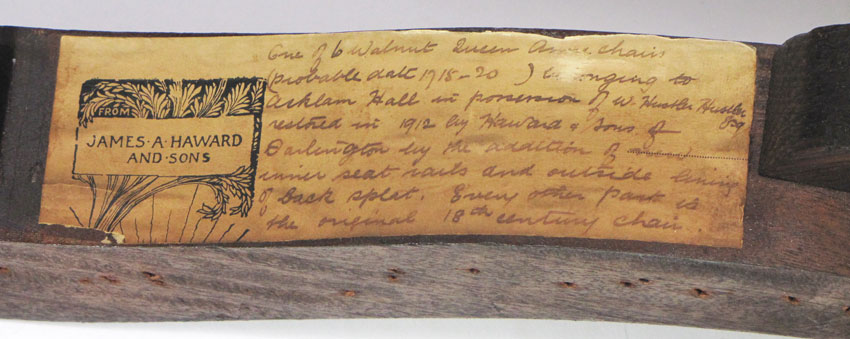 FROM
JAMES·A·HAWARD
AND·SONS
One of 6 Walnut Queen Anne chairs
(probable date 1718-20 ) belonging to
Acklam Hall in possession of W. Hustler Hustler
Esq
restored in 1912 by Haward & Sons of
Darlington by the addition of
inner seat rails and outside lining
of back splat. Every other part is
the original 18th century chair.